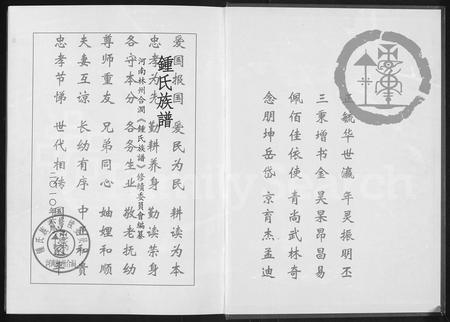 爱国报国 爱民为民 耕读为本
忠孝为先 勤耕养身 勤读荣身
各守本分 各务生业 敬老抚幼
尊师重友 兄弟同心 妯娌和顺
夫妻互谅 长幼有序 中 和贵
忠孝节悌 世代相传
鍾氏族譜
河南林州合澗《鍾氏族譜》修續委員會編
二〇一〇年
毓华世瀛 年灵振明丕
三秉增书金 昊杲昂昌易
佩佰佳依使 青尚武林奇
念朋坤岳岱 京育杰孟迪